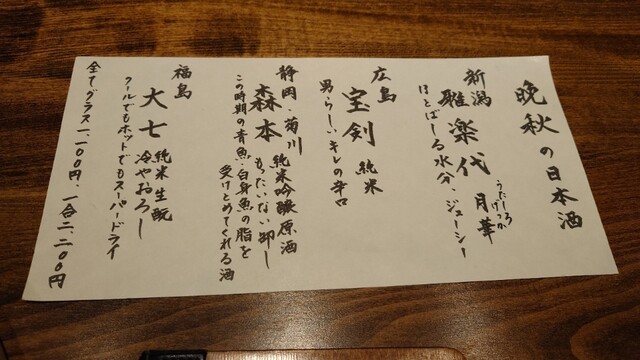 晩秋の日本酒
新潟
雅楽代 月華
うたしろ
げっか
ほとばしる水分、ジューシー
広島
宝剣 純米
男らしいキレの辛口
静岡・菊川
森本 純米吟醸原酒
もったいない卸し
この時期の青魚・白身魚の脂を
受けとめてくれる酒
福島
大七 純米生酛
冷やおろし
クールでもホットでもスーパードライ
全てグラス一、一〇〇円、一合二、二〇〇円